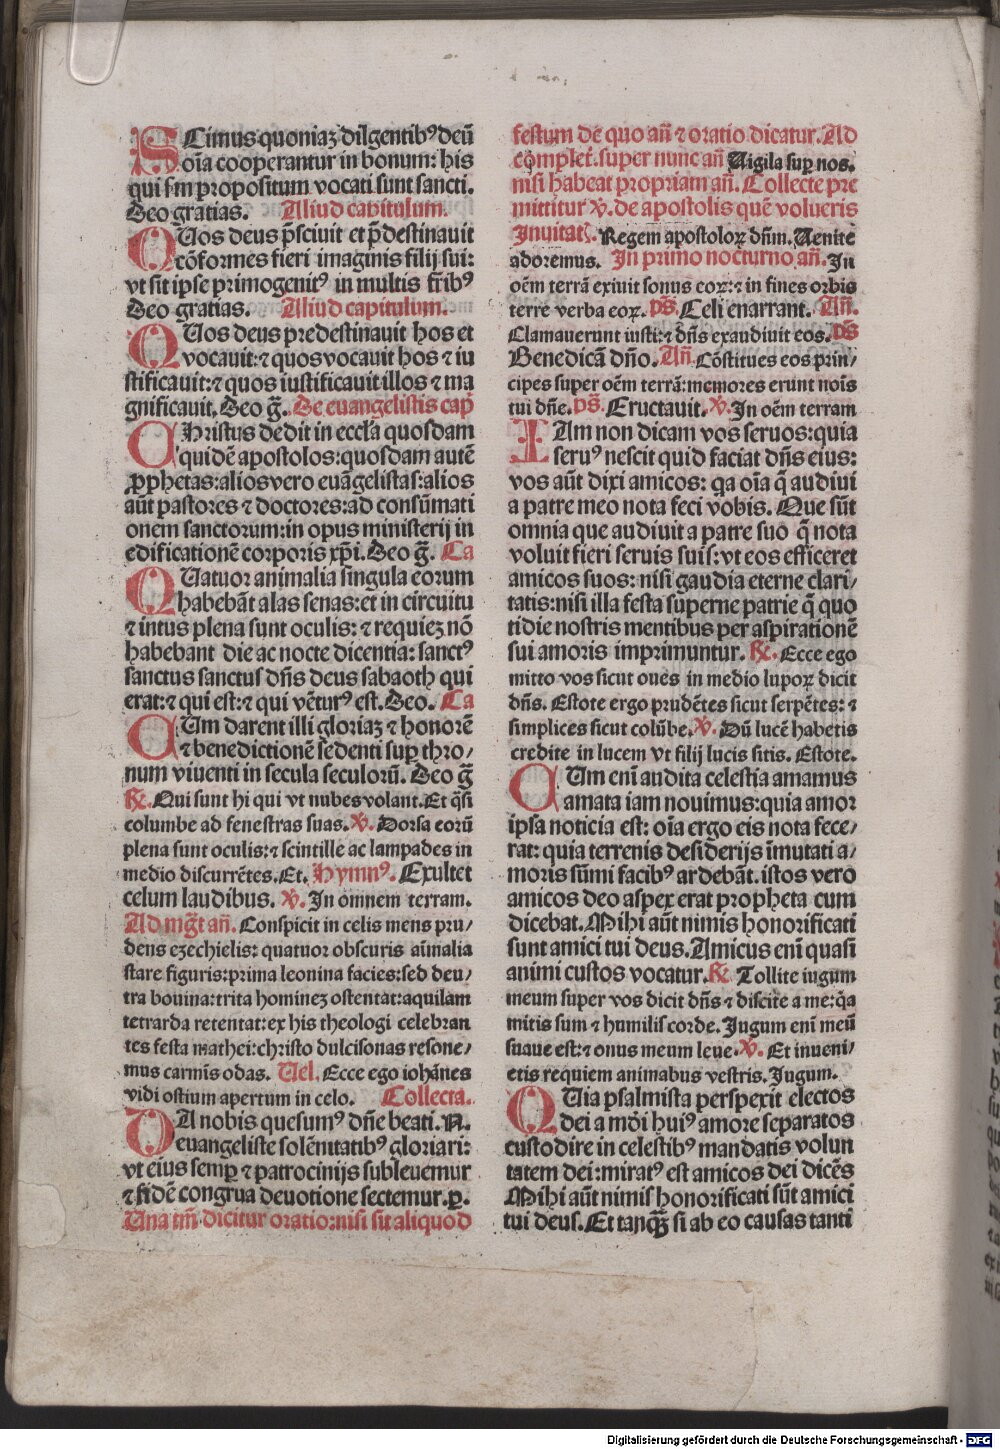 SCimus quoniaꝫ diligentibꝰ deū
oīa cooperantur in bonum: his
qui sm propositum vocati sunt sancti.
Deo gratias. Aliud capitulum.
QUos deus p̄sciuit et p̄destinauit
cōformes fieri imaginis filij sui:
vt sit ipse primogenitꝰ in multis fr̄ibꝰ
Deo gratias. Aliud capitulum.
QUos deus predestinauit hos et
vocauit: ⁊ quos vocauit hos ⁊ iu
stificauit: ⁊ quos iustificauit illos ⁊ ma
gnificauit. Deo g̃. De euangelistis cap̄
CHristus dedit in eccl'a quosdam
quidē apostolos: quosdam autē
ꝓphetas: alios vero euāgelistas: alios
aūt pastores ⁊ doctores: ad consūmati
onem sanctorum: in opus ministerij in
edificationē corporis xp̄i. Deo g̃. Ca
QUatuor animalia singula eorum
habebāt alas senas: et in circuitu
⁊ intus plena sunt oculis: ⁊ requieꝫ nō
habebant die ac nocte dicentia: sanctꝰ
sanctus sanctus dn̄s deus sabaoth qui
erat: ⁊ qui est: ⁊ qui vētur ꝰ est. Deo. Ca
CUm darent illi gloriaꝫ ⁊ honorē
⁊ benedictionē sedenti suꝑ thro/
num viuenti in secula seculorū. Deo g̃
℟. Qui sunt hi qui vt nubes volant. Et q̄si
columbe ad fenestras suas. ℣. Dorsa eorū
plena sunt oculis: ⁊ scintille ac lampades in
medio discurrētes. Et. Hymnꝰ. Exultet
celum laudibus. ℣. In omnem terram.
Ad mg̃t an̄. Conspicit in celis mens pru/
dens ezechielis: quatuor obscuris aīmalia
stare figuris: prima leonina facies: sed deu/
tra bouina: trita homineꝫ ostentat: aquilam
tetrarda retentat: ex his theologi celebran
tes festa mathei: christo dulcisonas resone/
mus carmīs odas. Uel. Ecce ego iohānes
vidi ostium apertum in celo. Collecta.
DA nobis quesumꝰ dn̄e beati. N.
euangeliste solēnitatibꝰ gloriari:
vt eius semꝑ ⁊ patrocinijs subleuemur
⁊ fidē congrua deuotione sectemur. ꝑ.
Una tm̄ dicitur oratio: nisi sit aliquod
festum dē quo an̄ ⁊ oratio dicatur. Ad
complet. super nunc an̄ Uigila suꝑ nos.
nisi habeat propriam an̄. Collecte pre
mittitur ℣. de apostolis quē volueris
Inuitat. Regem apostoloꝝ dn̄m. Uenite
adoremus. In primo nocturno an̄. In
oēm terrā exiuit sonus eoꝝ: ⁊ in fines orbis
terre verba eoꝝ. ps̄. Celi enarrant. An̄.
Clamauerunt iusti: ⁊ dn̄s exaudiuit eos. ps̄
Benedicā dn̄o. An̄ Cōstitues eos prin/
cipes super oēm terrā: memores erunt noīs
tui dn̄e. ps̄. Eructauit. ℣. In oēm terram
IAm non dicam vos seruos: quia
seruꝰ nescit quid faciat dn̄s eius:
vos aūt dixi amicos: q̄a oīa q̄ audiui
a patre meo nota feci vobis. Que sūt
omnia que audiuit a patre suo q̄ nota
voluit fieri seruis suis: vt eos efficeret
amicos suos: nisi gaudia eterne clari/
tatis: nisi illa festa superne patrie q̄ quo
tidie nostris mentibus per aspirationē
sui amoris imprimuntur. ℟. Ecce ego
mitto vos sicut oues in medio lupoꝝ dicit
dn̄s. Estote ergo prudētes sicut serpētes: ⁊
simplices sicut colūbe. ℣. Dū lucē habetis
credite in lucem vt filij lucis sitis. Estote.
CUm eni audita celestia amamus
amata iam nouimus: quia amor
ipsa noticia est: oīa ergo eis nota fece/
rat: quia terrenis desiderijs īmutati a/
moris sūmi facibꝰ ardebāt. istos vero
amicos deo aspexerat propheta cum
dicebat. Mihi aūt nimis honorificati
sunt amici tui deus. Amicus eni quasi
animi custos vocatur. ℟ Tollite iugum
meum super vos dicit dn̄s ⁊ discite a me: q̄a
mitis sum ⁊ humilis corde. Iugum eni meū
suaue est: ⁊ onus meum leue. ℣. Et inueni/
etis requiem animabus vestris. Iugum.
QUia psalmista perspexit electos
dei a mōi huiꝰ amore separatos
custodire in celestibꝰ mandatis volun
tatem dei: miratꝰ est amicos dei dicēs
Mihi aūt nimis honorificati sūt amici
tui deus. Et tanq̄ꝫ si ab eo causas tanti
Digitalisierung gefördert durch die Deutsche Forschungsgemeinschaft - DFG